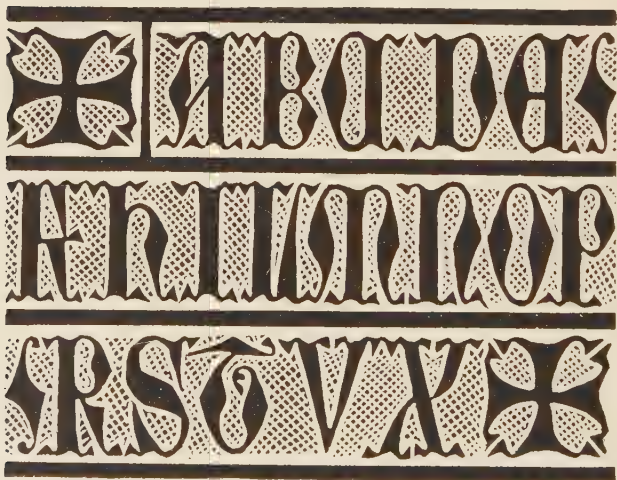 A B C D E F
G H I L M N O P
Q R S T V X